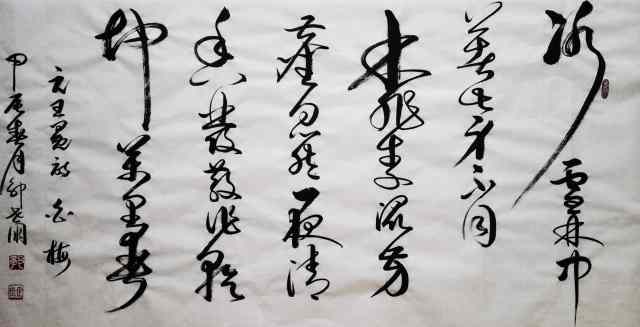 冰雪林中
著此身不同
桃李混芳
塵忽然一夜清
香發散作乾
坤萬里春
元王冕詩白梅
甲辰春月